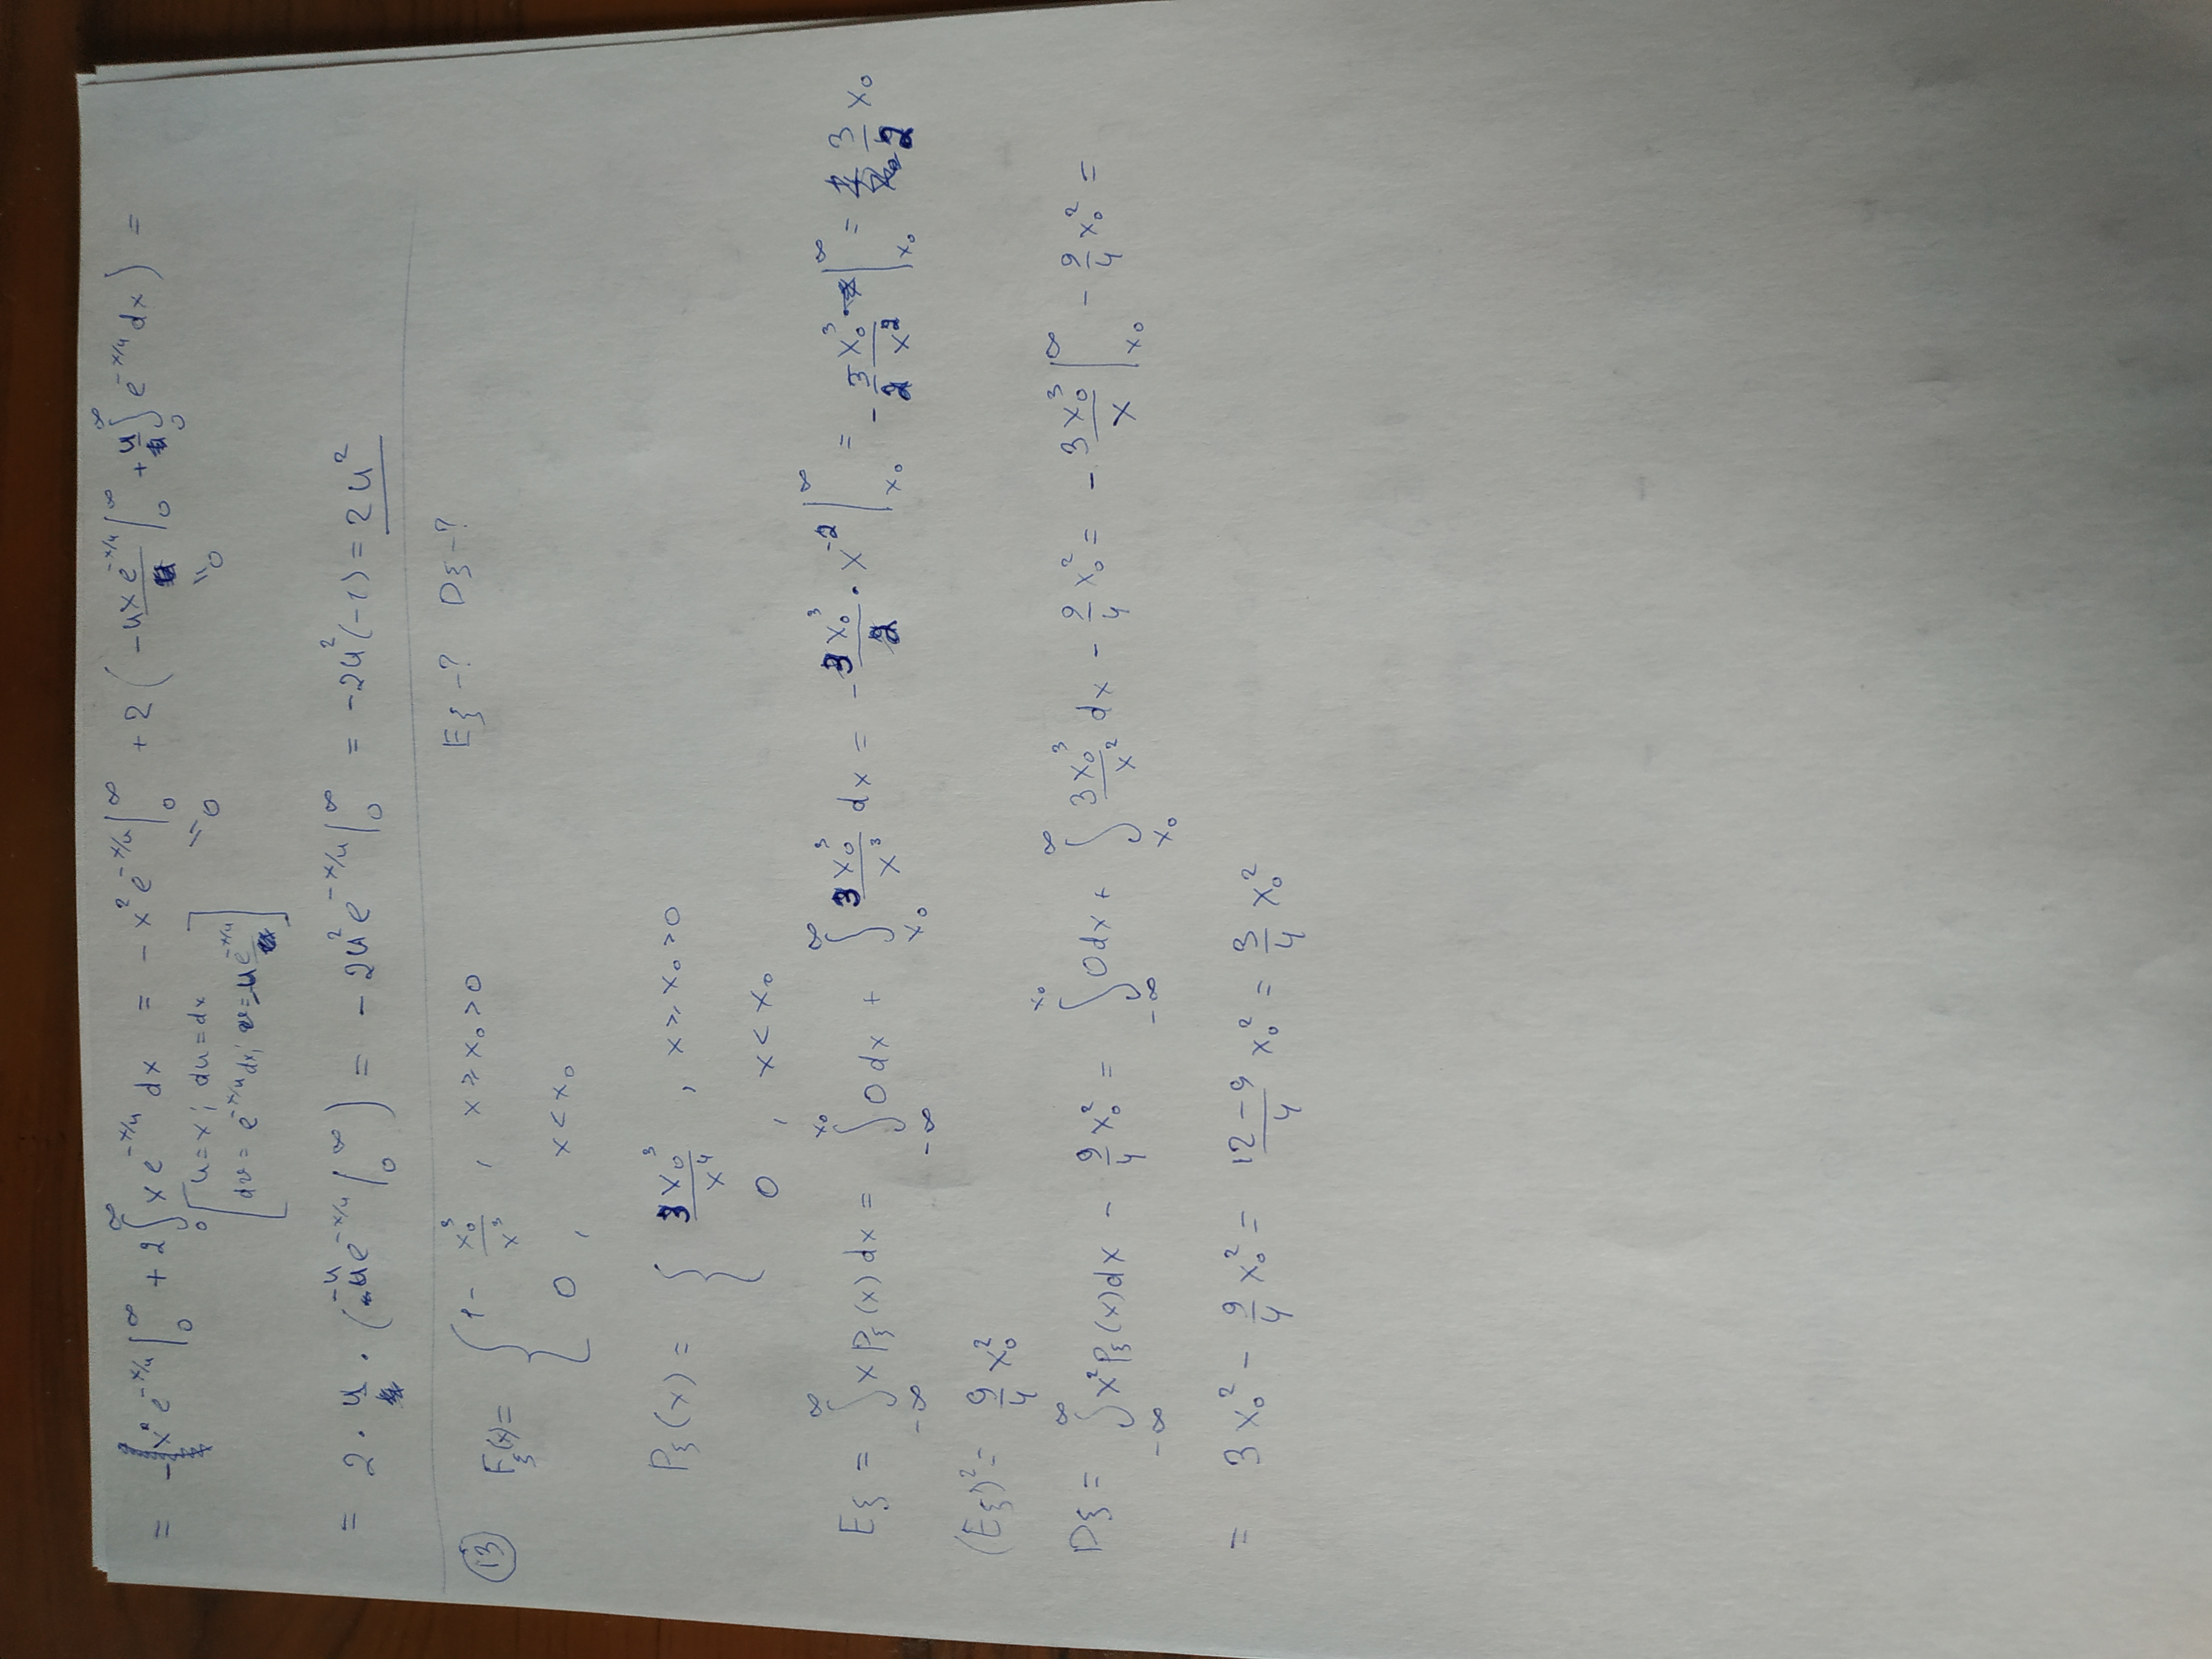 = - x² e^{-x/u} |₀^∞ + 2 ∫₀^∞ x e^{-x/u} dx = - x² e^{-x/u} |₀^∞ + 2 ( - u x e^{-x/u} |₀^∞ + u ∫₀^∞ e^{-x/u} dx ) =
[ u = x ; du = dx = 0 = 0
dv = e^{-x/u} dx ; v = - u e^{-x/u} ]
= 2 · u · ( -u e^{-x/u} |₀^∞ ) = - 2u² e^{-x/u} |₀^∞ = -2u² (-1) = 2u²
(13) F_ξ(x) = { 1 - x₀³/x³ , x ≥ x₀ > 0 Eξ -? Dξ -?
0 , x < x₀
P_ξ(x) = { 3x₀³/x⁴ , x ≥ x₀ > 0
0 , x < x₀
Eξ = ∫_{-∞}^{∞} x P_ξ(x) dx = ∫_{-∞}^{x₀} 0 dx + ∫_{x₀}^{∞} 3x₀³/x³ dx = - 3x₀³/2 · x^{-2} |_{x₀}^{∞} = - 3/2 x₀³/x² |_{x₀}^{∞} = 3/2 x₀
(Eξ)² = 9/4 x₀²
Dξ = ∫_{-∞}^{∞} x² P_ξ(x) dx - 9/4 x₀² = ∫_{-∞}^{x₀} 0 dx + ∫_{x₀}^{∞} 3x₀³/x² dx - 9/4 x₀² = - 3x₀³/x |_{x₀}^{∞} - 9/4 x₀² =
= 3x₀² - 9/4 x₀² = (12 - 9)/4 x₀² = 3/4 x₀²